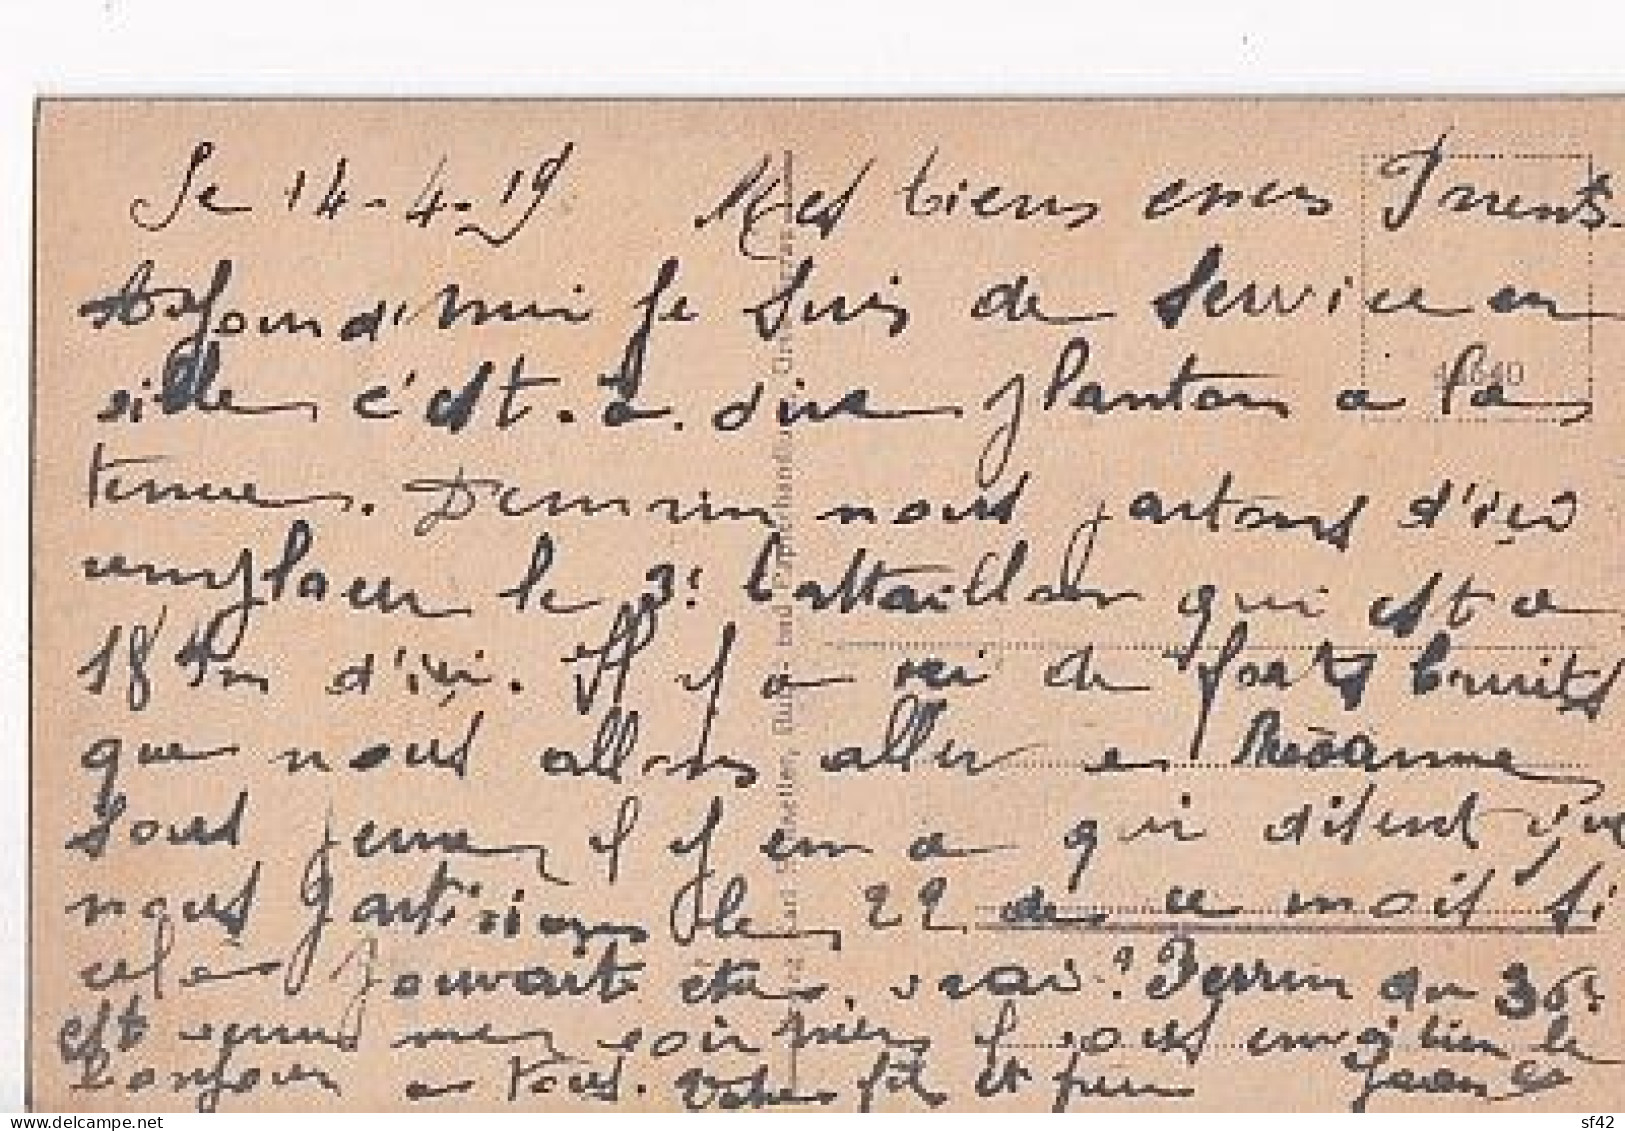 Le 14-4-19 Mes biens chers Parents.
Aujourd'hui je suis de service en
ville c'est-à-dire planton à la
tenue. Demain nous partons d'ici
remplacer le 3e battaillon qui est a
18 Km d'ici. Il y a ici de forts bruits
que nous allons aller en
sous peu, il y en a qui disent que
nous partirions le 22 de ce mois si
cela pouvait être vrai? Perrin du 36e
est venu me voir hier il vous envoi bien le
bonjour a tous. Votre fils et frère